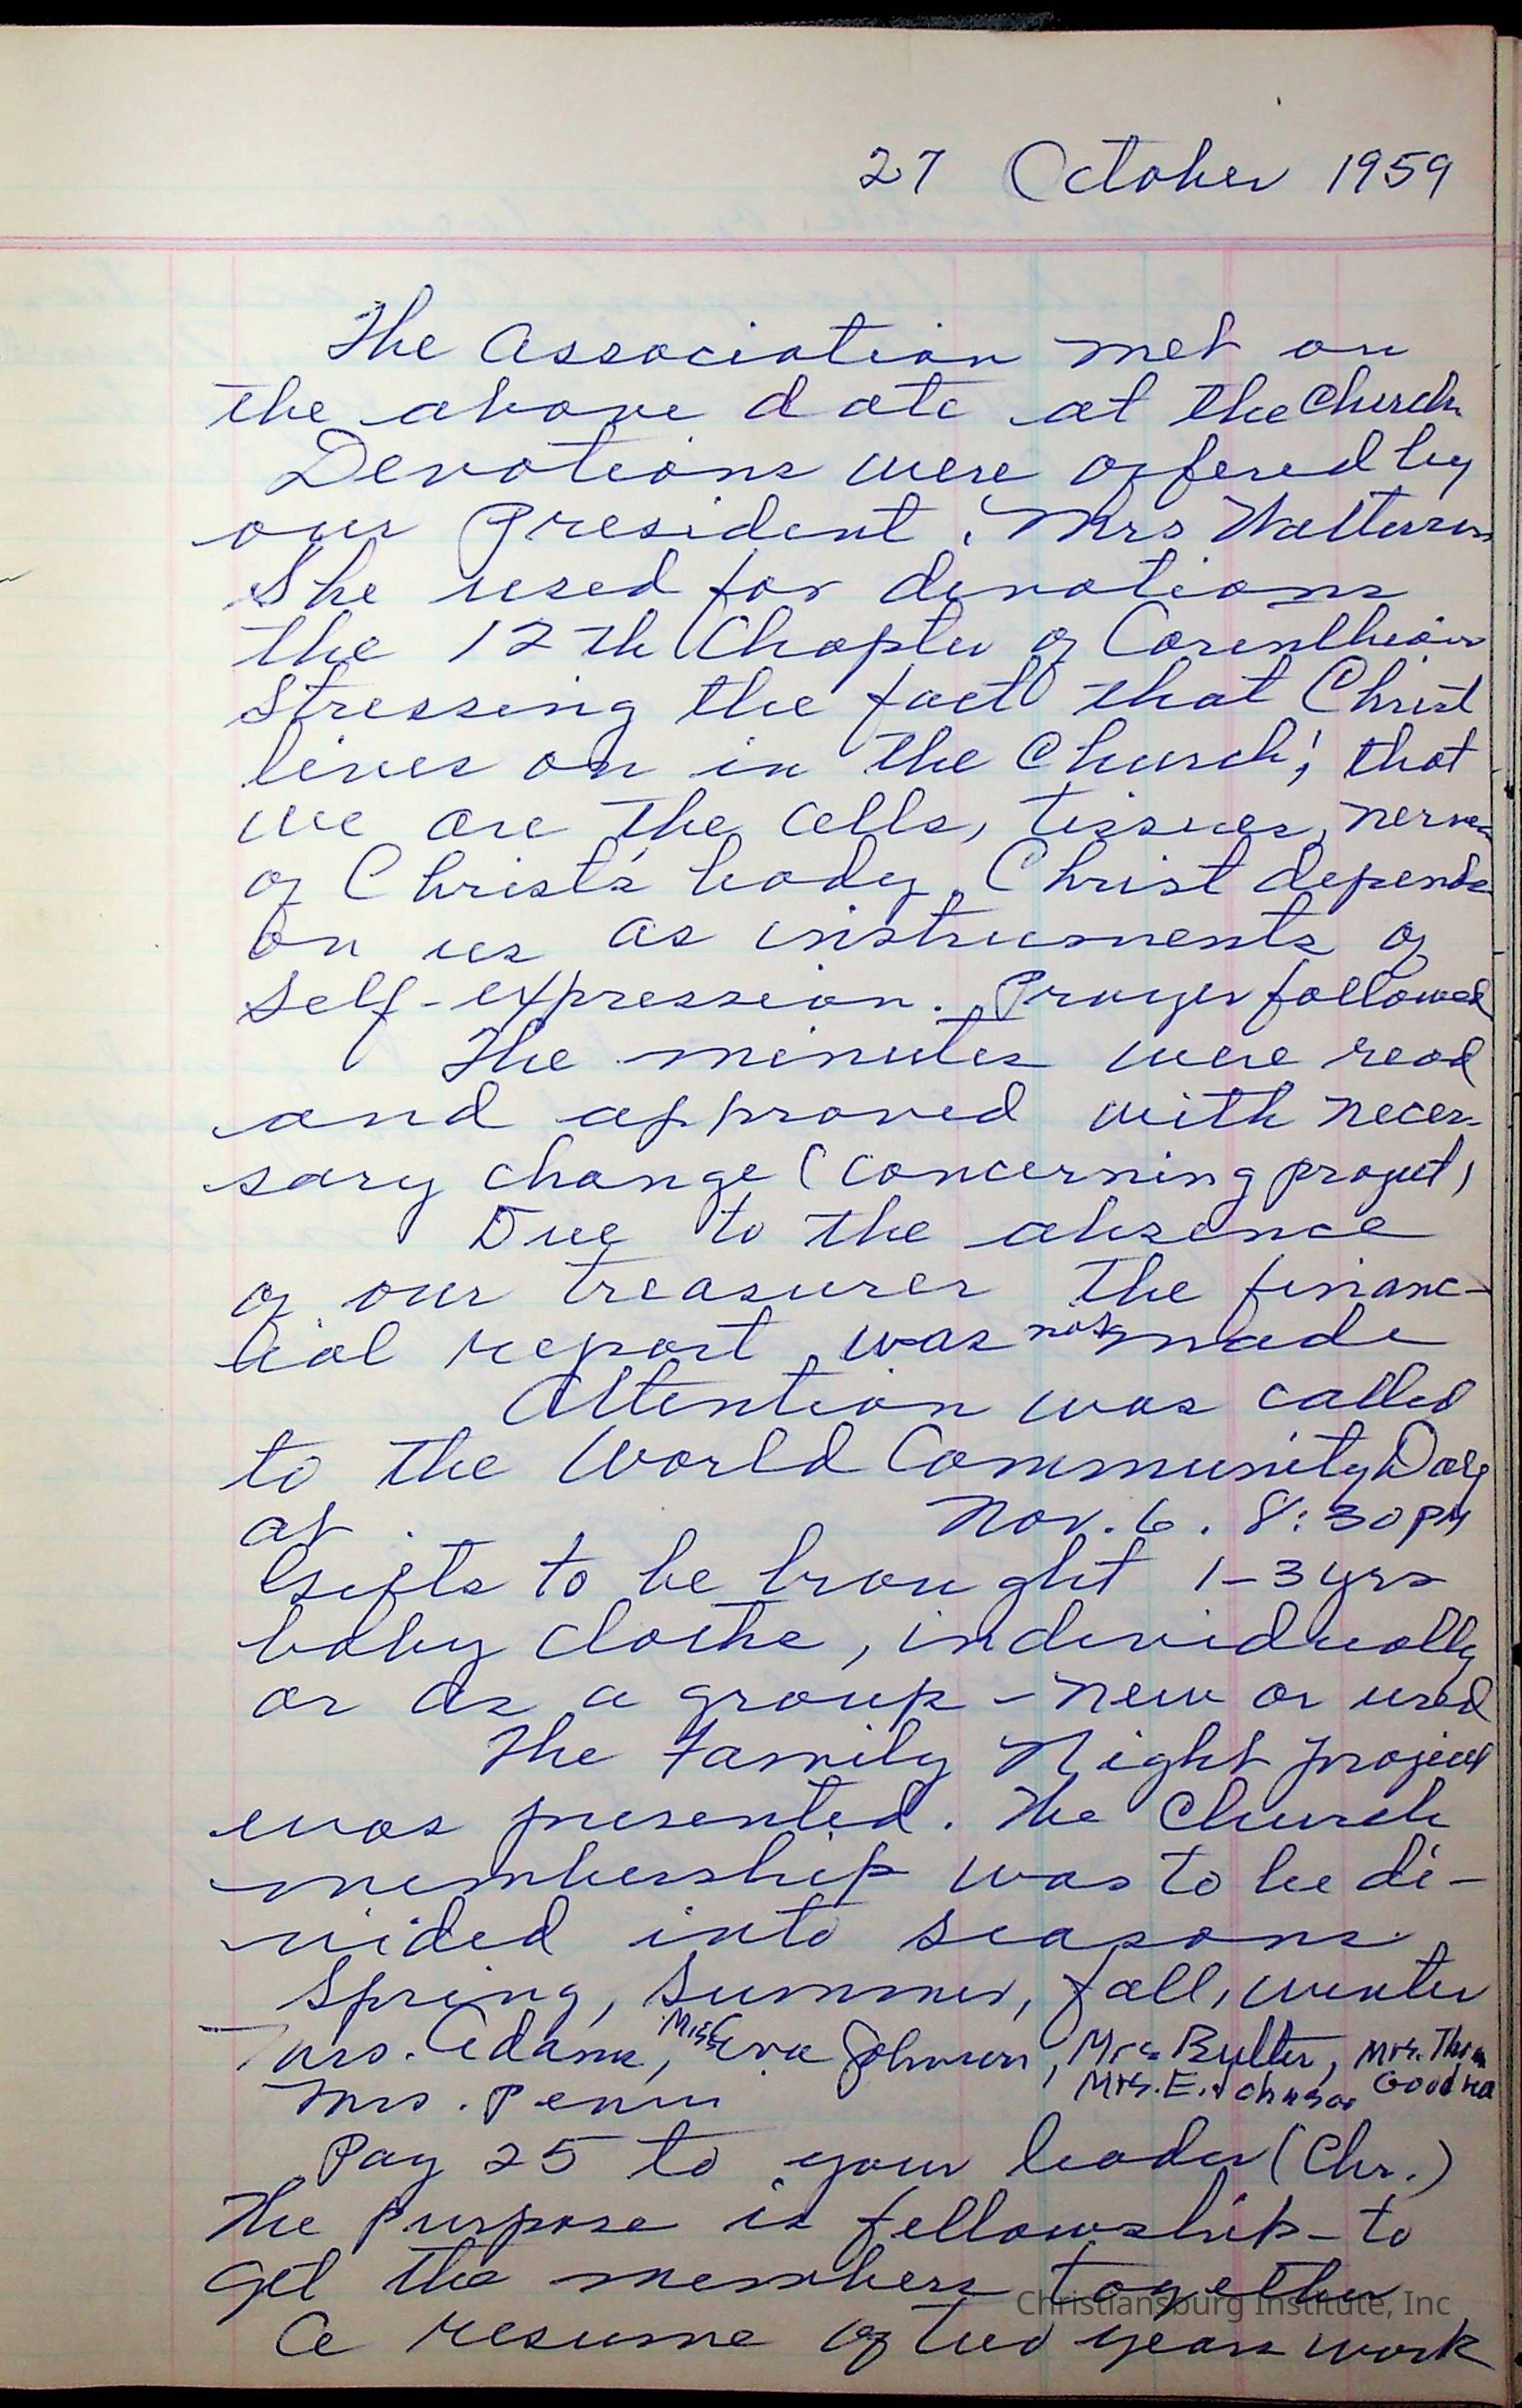 27 October 1959
The Association met on
the above date at the Church
Devotions were offered by
our President, Mrs Watterson
She used for devotions
the 12th Chapter of Corenthians
stressing the fact that Christ
lives on in the Church; that
we are the cells, tissues, nerves
of Christ's body. Christ depends
on us as instruments of
self-expression. Prayer followed
The minutes were read
and approved with neces-
sary change (concerning project)
Due to the absence
of our treasurer the financ-
ial report was not made
Attention was called
to the World Community Day
at Nov. 6. 8:30 PM
Gifts to be brought 1-3 yrs
baby clothe, individually
or as a group - new or used
The Family Night project
was presented. The Church
membership was to be di-
vided into seasons
Spring, Summer, fall, winter
Mrs. Adams, Miss Eva Johnson, Mrs Butler, Mrs. 
Mrs. Penn Mrs. E. Johnson
Pay 25 to your leader (Chr.)
The purpose is fellowship - to
get the members together
A resume of two years work
Christiansburg Institute, Inc